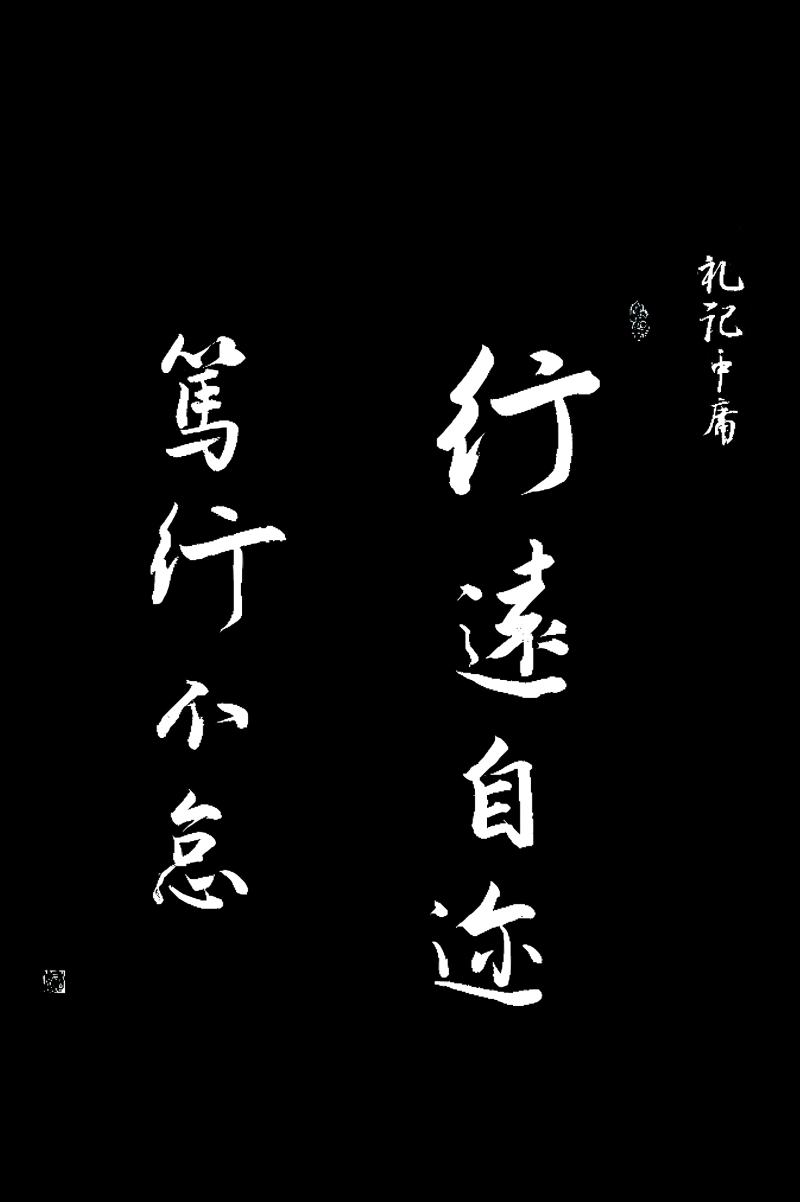 礼记中庸
行遠自迩
篤行不怠